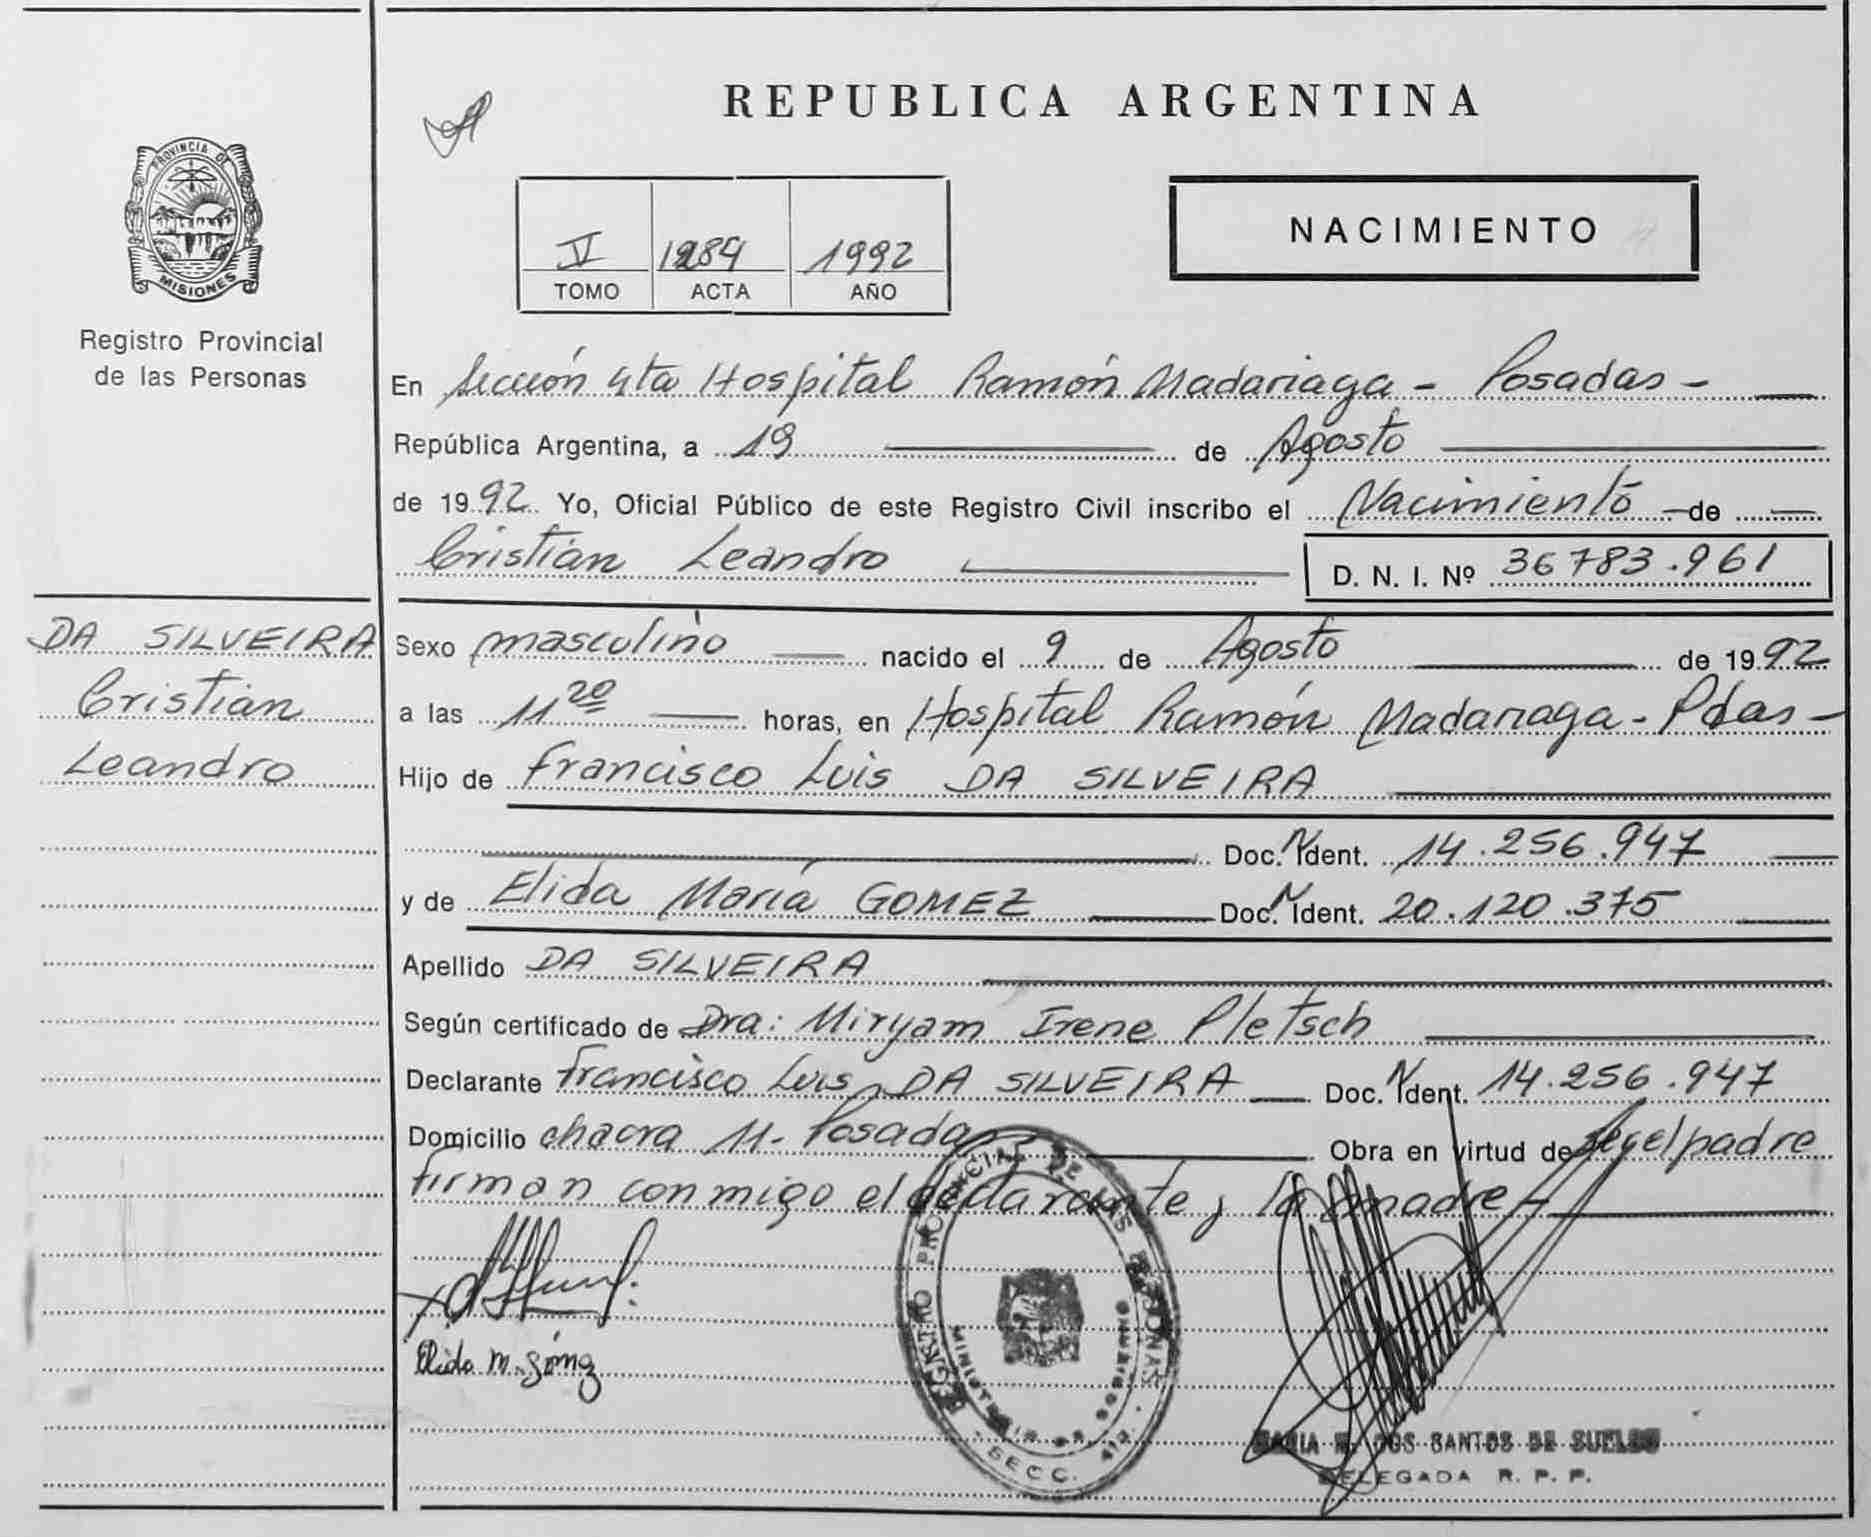 REPUBLICA ARGENTINA
PROVINCIA DE
MISIONES
Registro Provincial
de las Personas
V 1284 1992
TOMO ACTA AÑO
NACIMIENTO
En Sección 4ta Hospital Ramón Madariaga - Posadas -
República Argentina, a 19 de Agosto
de 1992 Yo, Oficial Público de este Registro Civil inscribo el Nacimiento de
Cristian Leandro
D. N. I. Nº 36783.961
DA SILVEIRA
Cristian
Leandro
Sexo masculino nacido el 9 de Agosto de 1992
a las 11 20 horas, en Hospital Ramón Madariaga - Pdas -
Hijo de Francisco Luis DA SILVEIRA
Doc. N Ident. 14.256.947
y de Elida María GOMEZ Doc. N Ident. 20.120.375
Apellido DA SILVEIRA
Según certificado de Dra: Miryam Irene Pletsch
Declarante Francisco Luis DA SILVEIRA Doc. N Ident. 14.256.947
Domicilio chacra 11 - Posadas Obra en virtud de ser el padre
firman conmigo el declarante y la madre -
REGISTRO PROVINCIAL DE LAS PERSONAS
MINISTERIO DE GOBIERNO
SECC. 4ta
Elida M. Gómez
MARIA DOS SANTOS DE SUELDO
DELEGADA R. P. P.